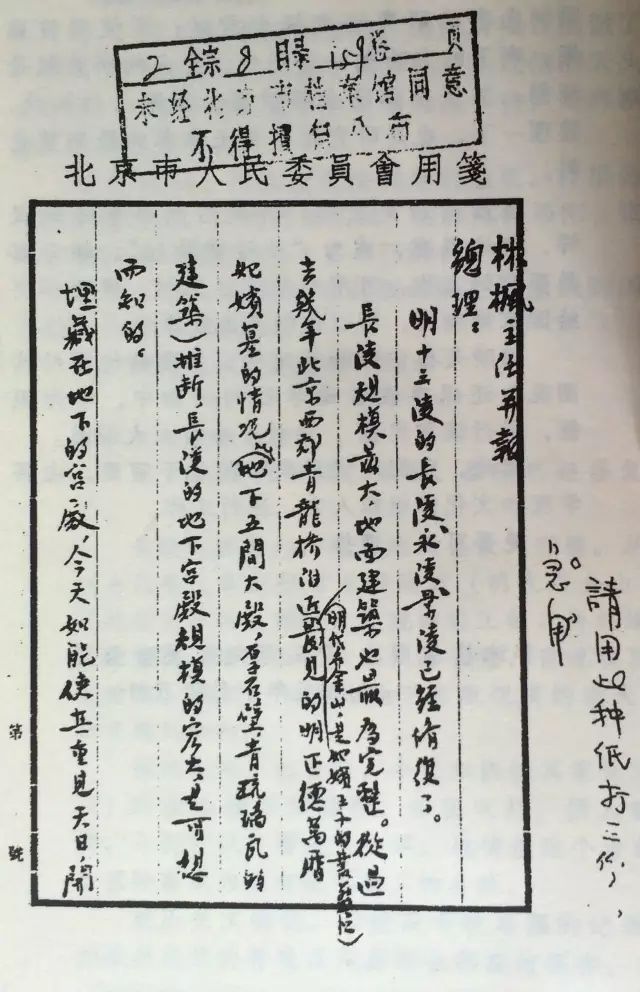 2 全宗 8 目录 159 卷 頁
未经北京市档案馆同意
不得擅自公布
北京市人民委員會用箋
林楓主任並報
總理：
明十三陵的長陵、永陵、景陵已經修復了。
長陵規模最大，地面建築也最為完整。從過
去幾年北京西郊青龍橋附近（明代在金山，是妃嬪王子的葬地）的明正德萬曆
妃嬪墓的情況（地下五間大殿，石壁青琉璃瓦的
建築）推断，長陵的地下宮殿規模的宏大，是可想
而知的。
埋藏在地下的宮殿，今天如能使其重見天日，開
第 號
請用此种纸打三份，
急用